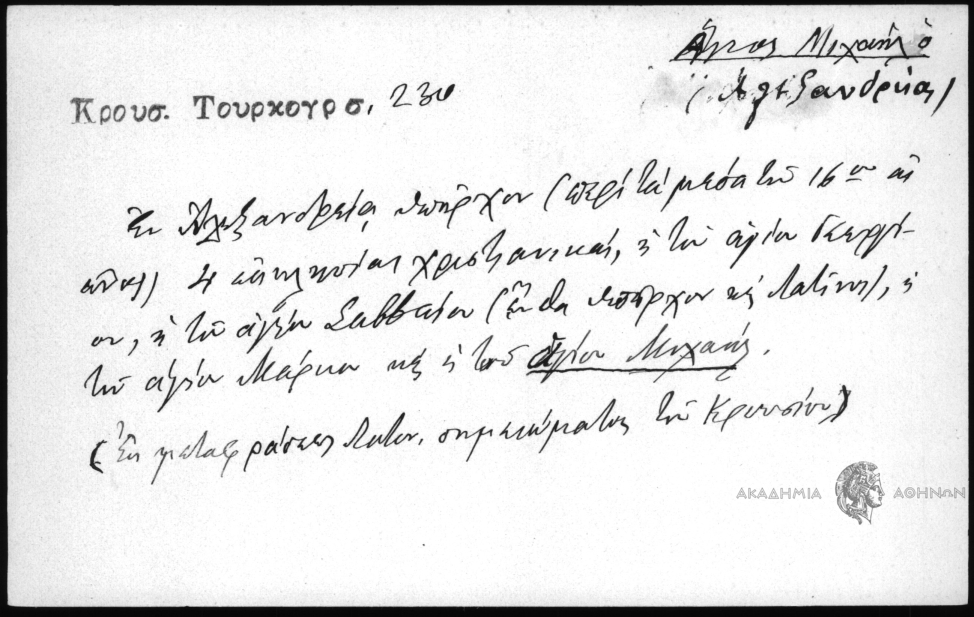 Ἅγιος Μιχαήλ ὁ
(Ἀλεξανδρείας)
Κρουσ. Τουρκογρσ. 230
Ἐν Ἀλεξανδρείᾳ ὑπῆρχον (περὶ τὰ μέσα τοῦ 16ου αἰ
ῶνος) 4 ἐκκλησίαι χριστιανικαί, ἡ τοῦ ἁγίου Γεωργί-
ου, ἡ τοῦ ἁγίου Σαββαίου (ἔνθα ὑπῆρχον κὲ Λατῖνοι), ἡ
τοῦ ἁγίου Μάρκου κὲ ἡ τοῦ ἁγίου Μιχαήλ.
(Ἐκ μεταφράσεως Λατιν. σημειώματος τοῦ Κρουσίου)
ΑΚΑΔΗΜΙΑ ΑΘΗΝΩΝ